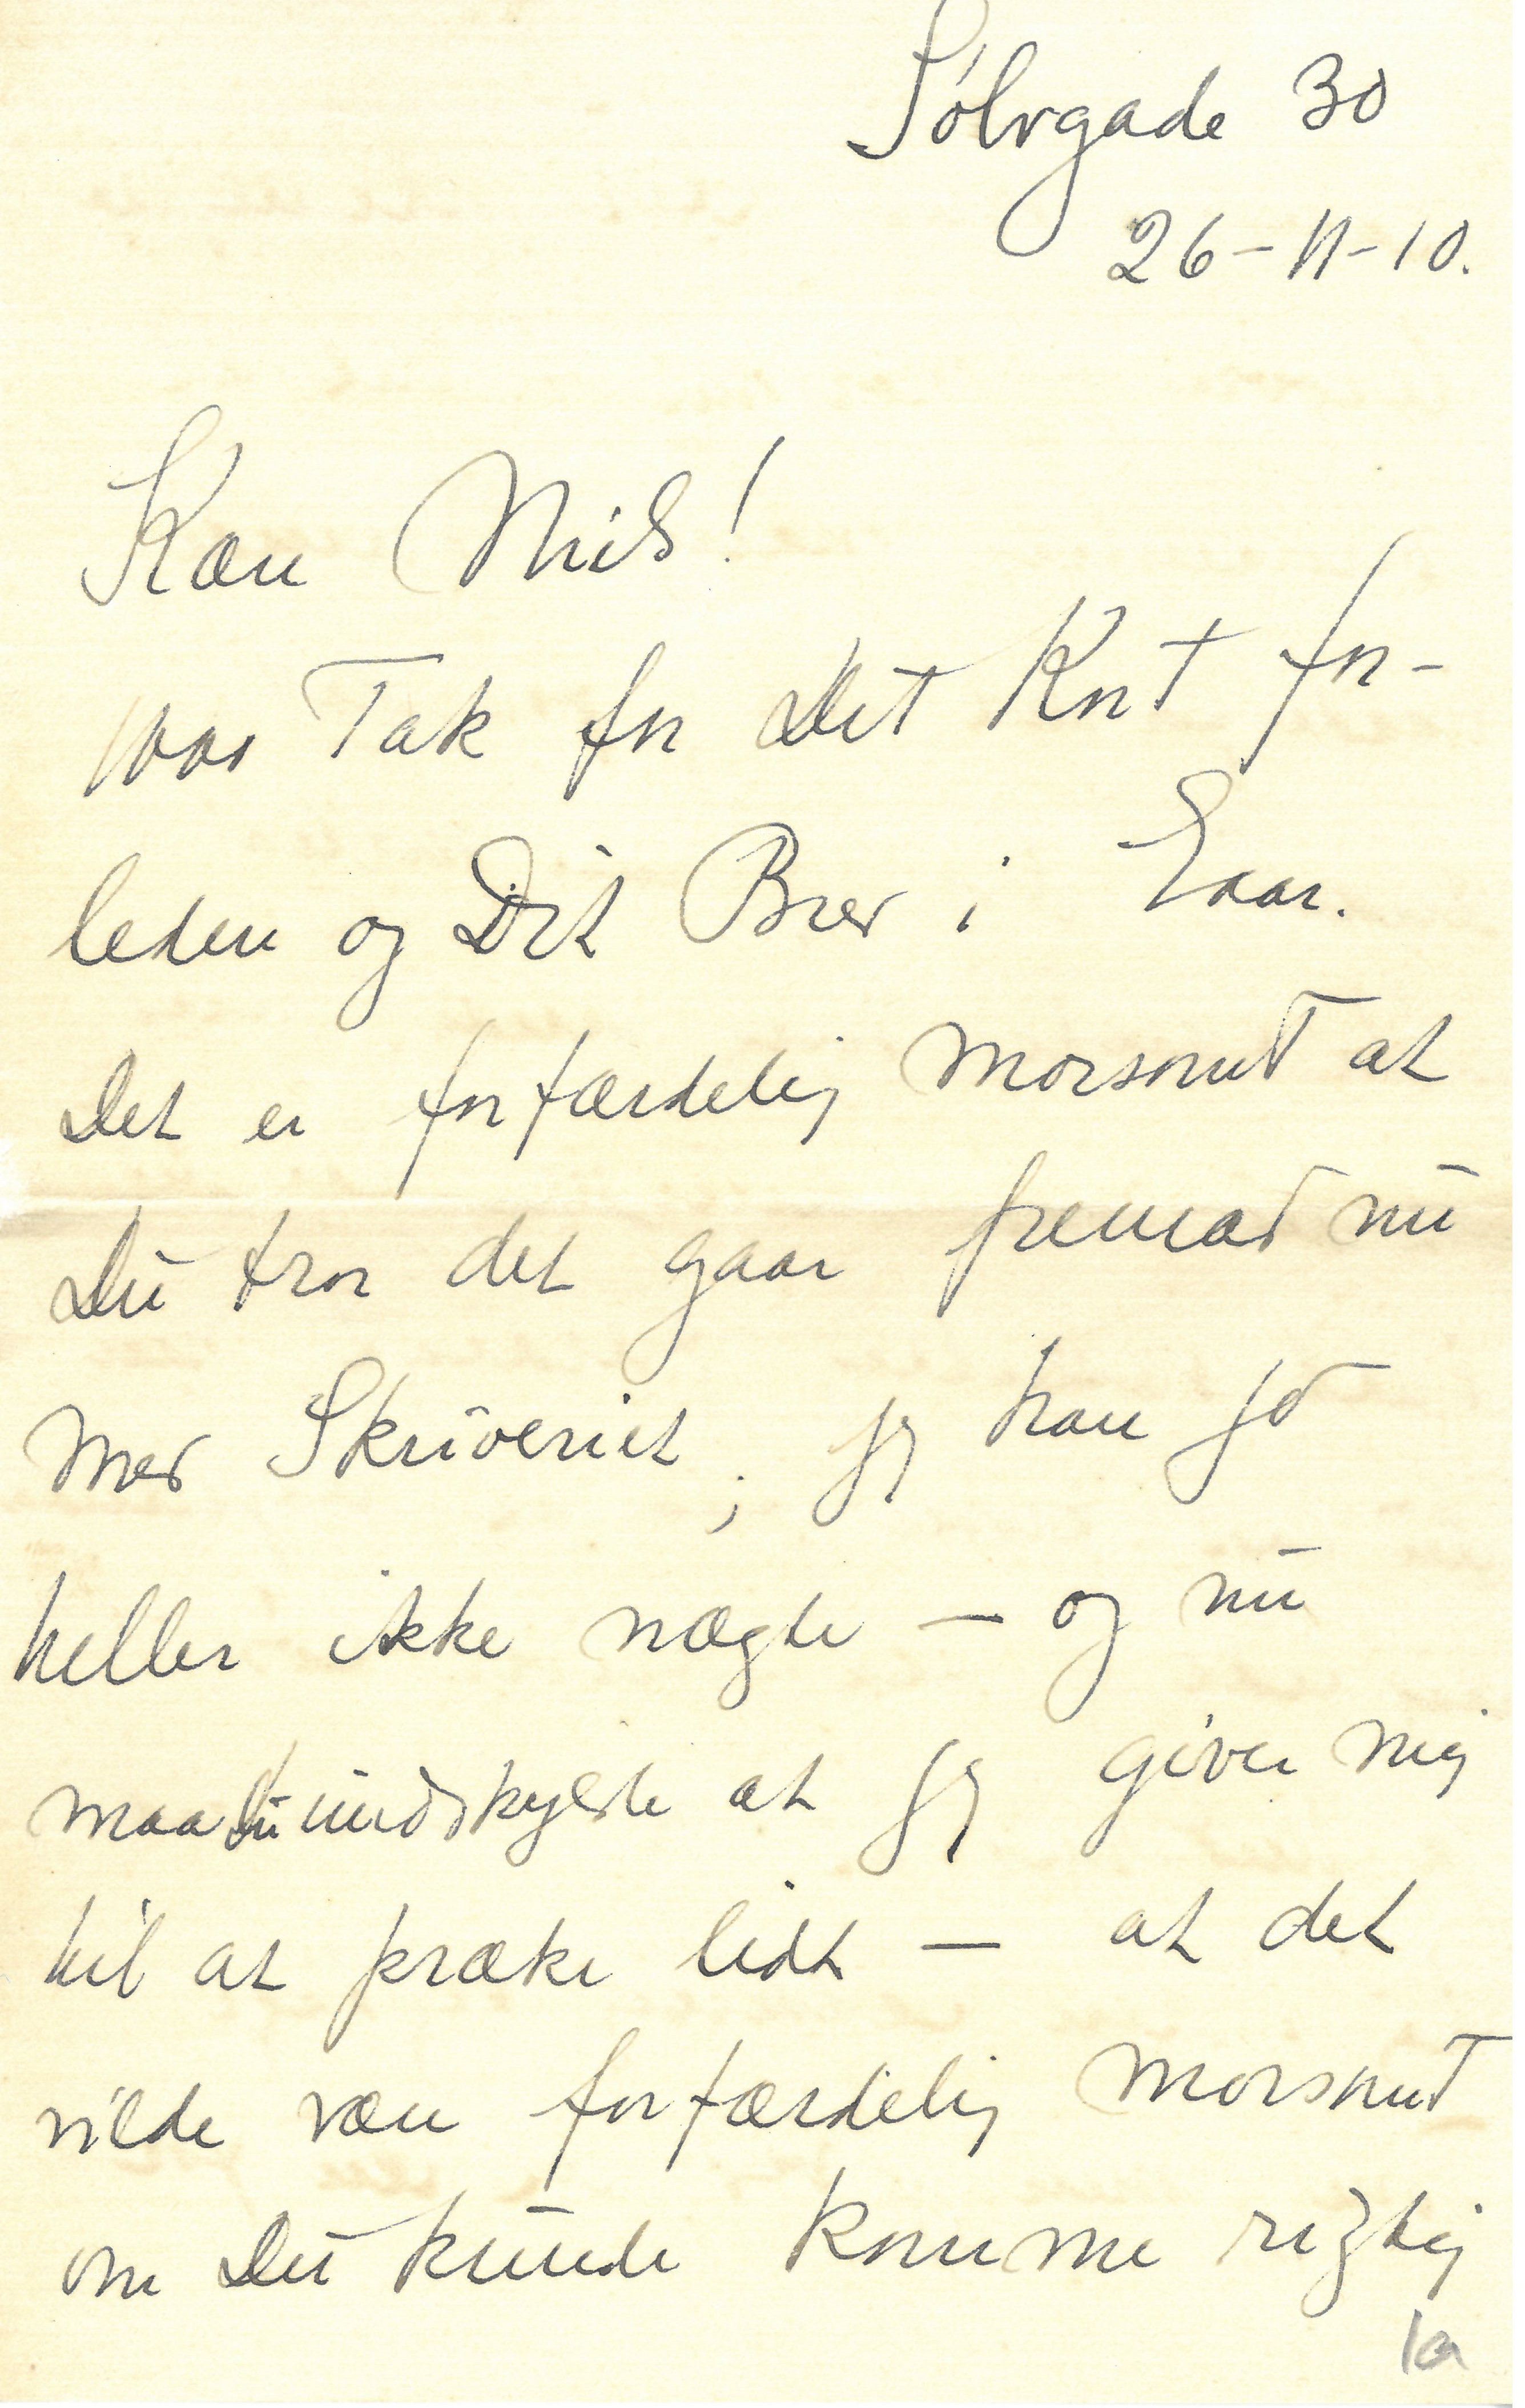 Sölvgade 30
26-11-10.
Kære Nils!
1000 Tak for Det Kort for-
leden og Dit Brev i Gaar.
Det er forfærdelig morsomt at
Du tror det gaar fremad nu
med Skriveriet, jeg kan jo
heller ikke nægte — og nu
maa Du undskylde at jeg giver mig
til at præke lidt — at det
vilde være forfærdelig morsomt
om Du kunde komme rigtig
1a